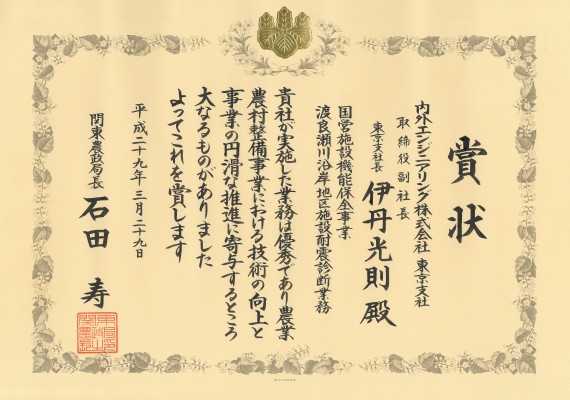 賞状
内外エンジニアリング株式会社 東京支社
取締役副社長
東京支社長 伊丹光則 殿
国営施設機能保全事業
渡良瀬川沿岸地区施設耐震診断業務
貴社が実施した業務は優秀であり農業
農村整備事業における技術の向上と
事業の円滑な推進に寄与するところ
大なるものがありました
よってこれを賞します
平成二十九年三月二十九日
関東農政局長 石田 寿